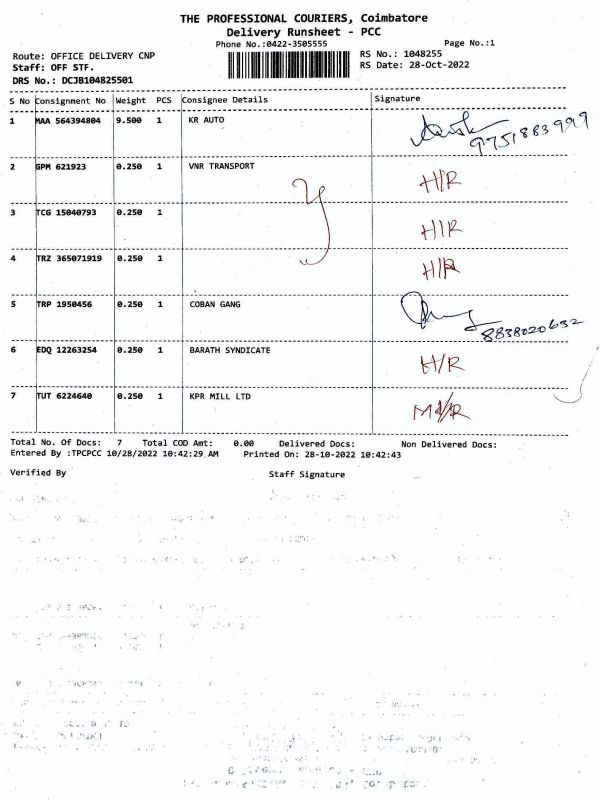 THE PROFESSIONAL COURIERS, Coimbatore
Delivery Runsheet - PCC
Phone No.:0422-3505555 Page No.:1
Route: OFFICE DELIVERY CNP RS No.: 1048255
Staff: OFF STF. RS Date: 28-Oct-2022
DRS No.: DCJB104825501
S No Consignment No Weight PCS Consignee Details Signature
1 MAA 564394804 9.500 1 KR AUTO
9751883999
2 GPM 621923 0.250 1 VNR TRANSPORT H/R
3 TCG 15040793 0.250 1 H/R
4 TRZ 365071919 0.250 1 H/R
5 TRP 1950456 0.250 1 COBAN GANG
8838020632
6 EDQ 12263254 0.250 1 BARATH SYNDICATE H/R
7 TUT 6224640 0.250 1 KPR MILL LTD
Total No. Of Docs: 7 Total COD Amt: 0.00 Delivered Docs: Non Delivered Docs:
Entered By :TPCPCC 10/28/2022 10:42:29 AM Printed On: 28-10-2022 10:42:43
Verified By Staff Signature